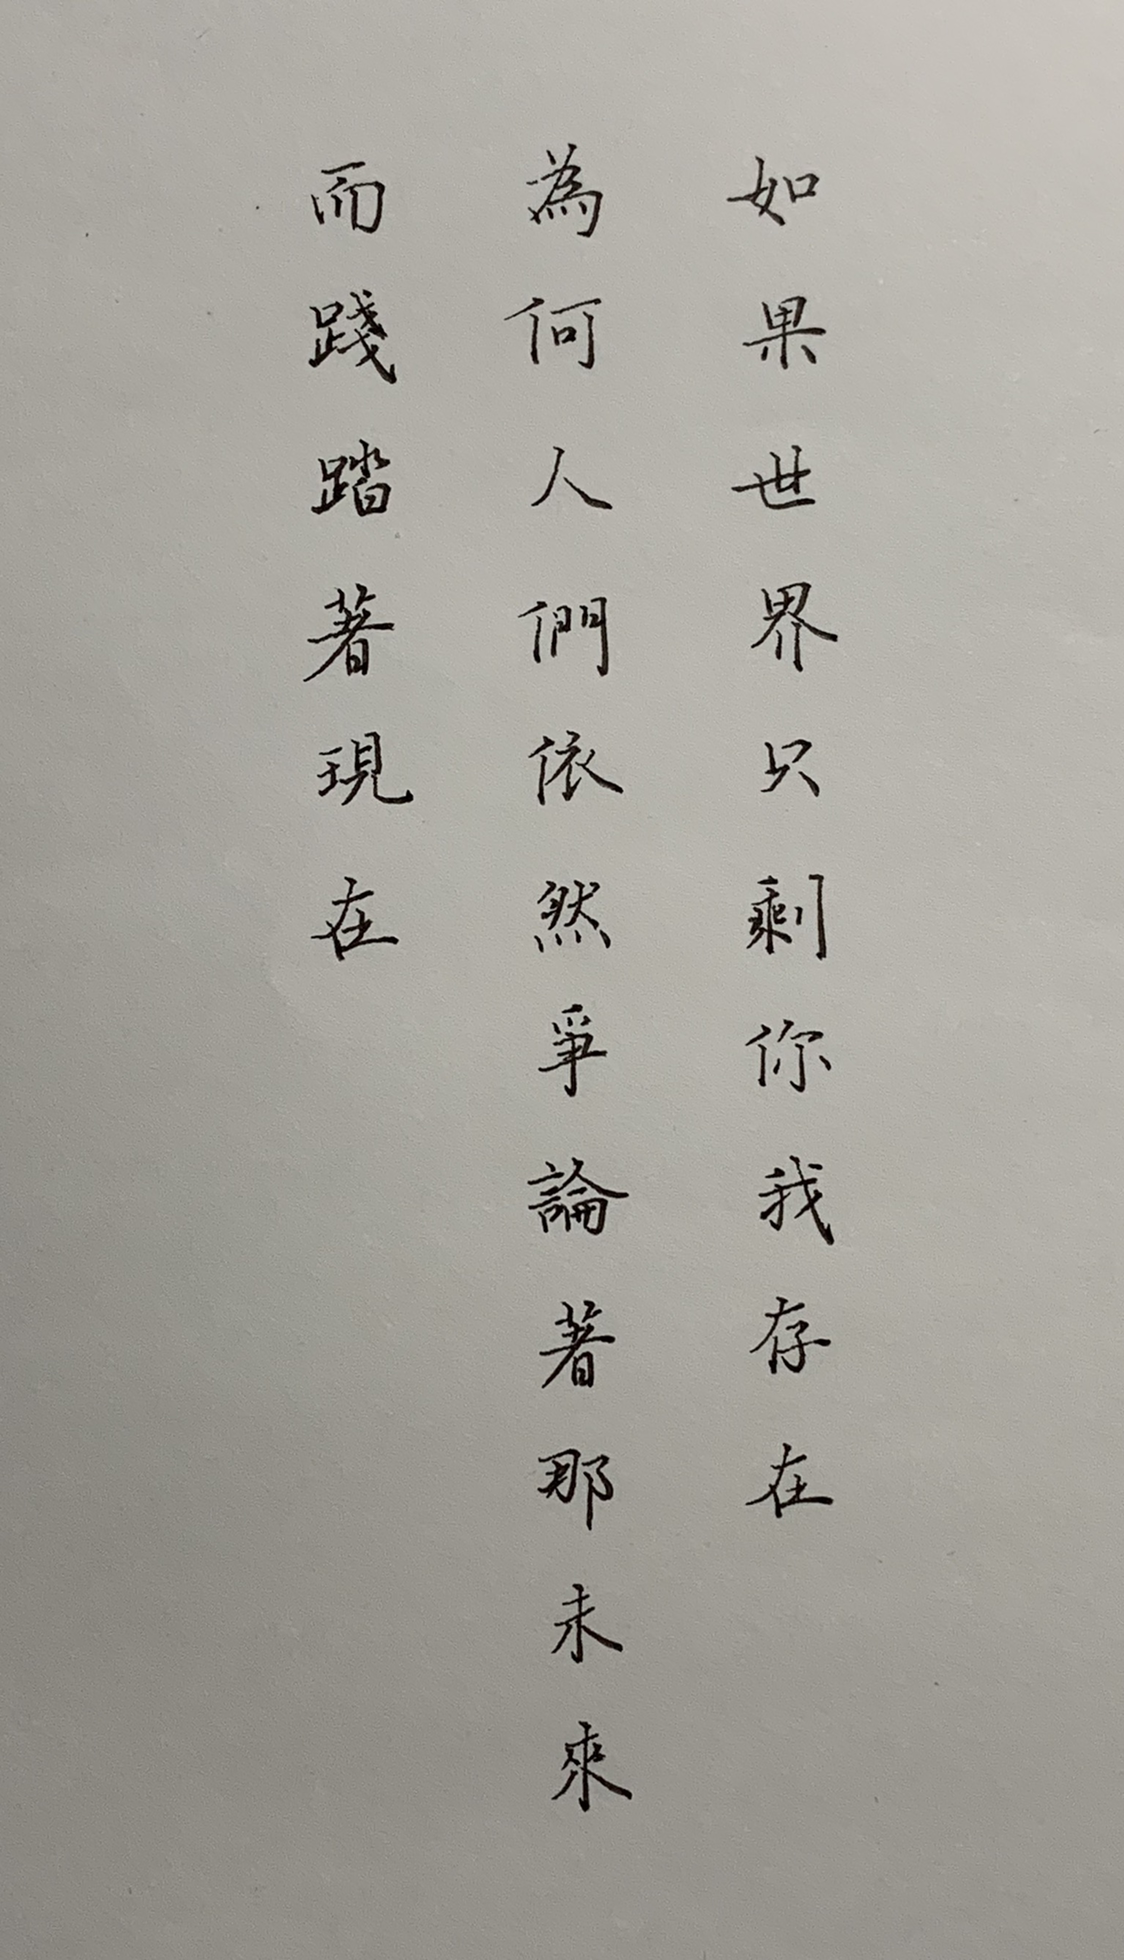 如果世界只剩你我存在
為何人們依然爭論著那未來
而踐踏著現在